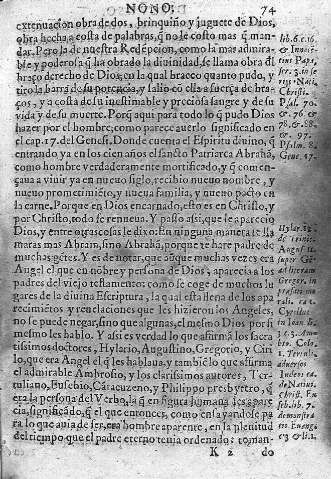 NONO.
74
extenuacion obra de dos, brinquiño y juguete de Dios,
obra hecha a costa de palabras, q̃ no le costo mas q̃ man-
dar. Pero la de nuestra Redẽpcion, como la mas admira-
ble y poderosa q̃ ha obrado la diuinidad, se llama obra dl
braço derecho de Dios, en la qual bracco quanto pudo, y
tiro la barra de su potencia, y salio cõ ella a fuerça de bra-
ços, y a costa de su inestimable y preciosa sangre y de su
vida y de su muerte. Porq̃ aqui para todo lo q̃ pudo Dios
hazer por el hombre, como parece auerlo significado en
el cap. 17. del Genesi. Donde cuenta el Espiritu diuino, q̃
entrando ya en los cien años el sancto Patriarca Abrahã,
como hombre verdaderamente mortificado, y q̃ comen-
çaua a viuir ya en nueuo siglo, recibio nueuo nombre, y
nueuo promecimiẽto, y nueua familia, y nueuo pacto en
la carne. Porque en Dios encarnado, esto es en Christo, y
por Christo, todo se renueua. Y passo assi, que le aparecio
Dios, y entre otras cosas le dixo: En ninguna manera te lla
maras mas Abram, sino Abrahã, porque te hare padre de
muchas gẽtes. Y es de notar, que aũque muchas vezes era
Angel el que en nobre y persona de Dios, aparecia a los
padres del viejo testamento: como se coge de muchos lu-
gares de la diuina Escriptura, la qual esta llena de los apa
recimiẽtos y reuelaciones que les hizieron los Angeles,
no se puede negar, sino que algunas, el mesmo Dios por si
mesmo les hablo. Y assi es verdad lo que afirmã los sacra
tissimos doctores, Hylario, Augustino, Gregorio, y Ciri
lo, que era Angel el q̃ les hablaua, y tambiẽ lo que afirma
el admirable Ambrosio, y los clarissimos autores, Ter-
tuliano, Eusebio, Cátacuzeno, y Philippo presbytero, q̃
era la persona del Verbo, la q̃ en figura humana les apare
cia, significado, q̃ el que entonces, como ensayandose pa
ra lo que auia de ser, era hombre aparente, en la plenitud
del tiempo que el padre eterno tenia ordenado: toman-
K 2 do
lib. 6. c. 16.
Psal. 70
& 76.
& 78.
& 97.
Psalm. 8.
Genes. 17.
Hylar. 12.
de Trinit.
Augus. li.
super Gẽ.
ad literam
Gregor. in
Cyrillus
in Ioan. li.
Tertull.
aduersus